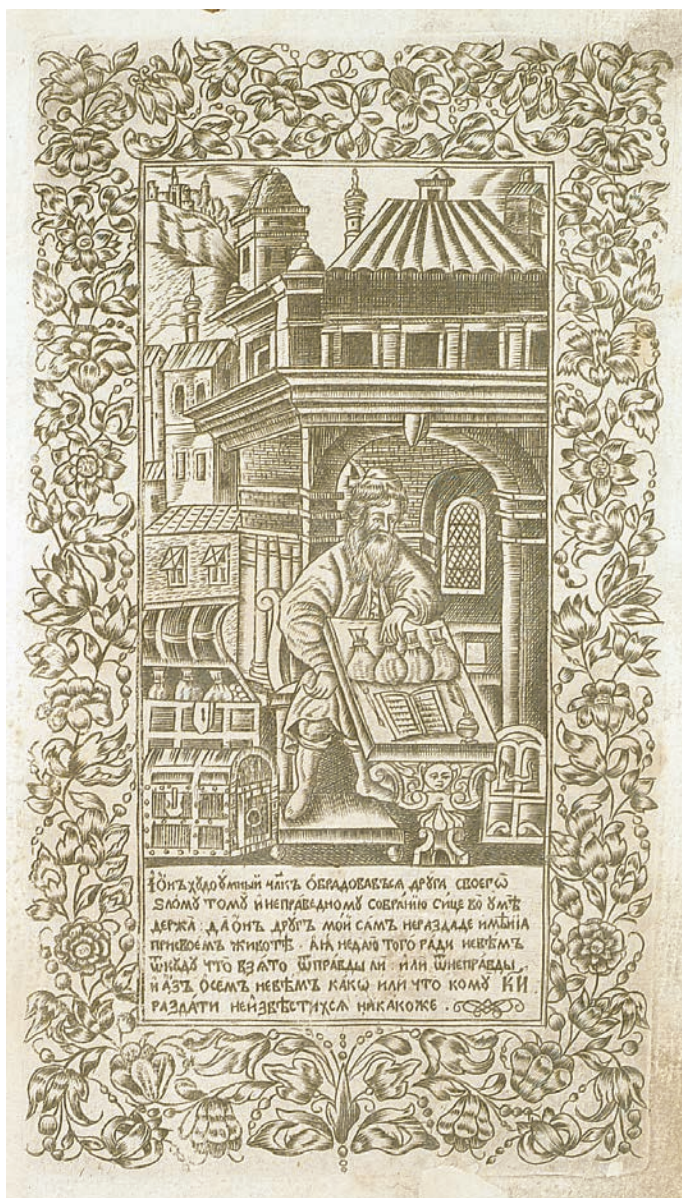 І҆ ѻ҆нъ хꙋдоꙋ́мный чл҃къ ѻ҆брадовавъсѧ дрꙋга своегѡ
ѕломꙋ томꙋ и҆ неправедномꙋ собра́нїю сице во ᲂумѣ
держа : да ѻ҆́нъ дрꙋгъ мо́й са́мъ нераздаде имѣ́нїѧ
присвоемъ животѣ̀ . а꙳ꙗ недаю̀ того̀ ради невѣ́мъ
ѿкꙋдꙋ что взѧ́то ѿправды ли или ѿнеправды ,
и҆ а҆́зъ ѻсемъ невѣ́мъ какѡ или что комꙋ КИ
раздати неи҆звѣстихсѧ никакоже .